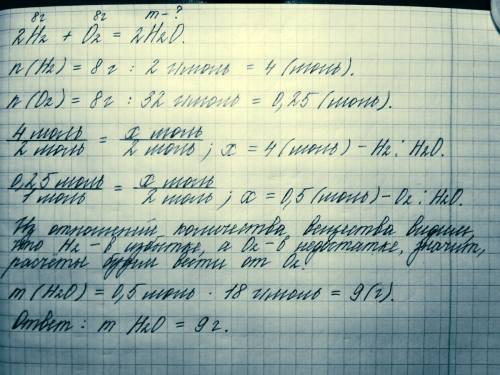 8г 8г m-?
2H₂ + O₂ = 2H₂O.
n(H₂) = 8г : 2 г/моль = 4 (моль).
n(O₂) = 8г : 32 г/моль = 0,25 (моль).
4 моль / 2 моль = x моль / 2 моль ; x = 4 (моль) - H₂ : H₂O.
0,25 моль / 1 моль = x моль / 2 моль ; x = 0,5 (моль) - O₂ : H₂O.
Из отношений количества вещества видим,
что H₂ - в избытке, а O₂ - в недостатке, значит,
расчёты будем вести от O₂.
m(H₂O) = 0,5 моль · 18 г/моль = 9 (г).
Ответ: m H₂O = 9 г.